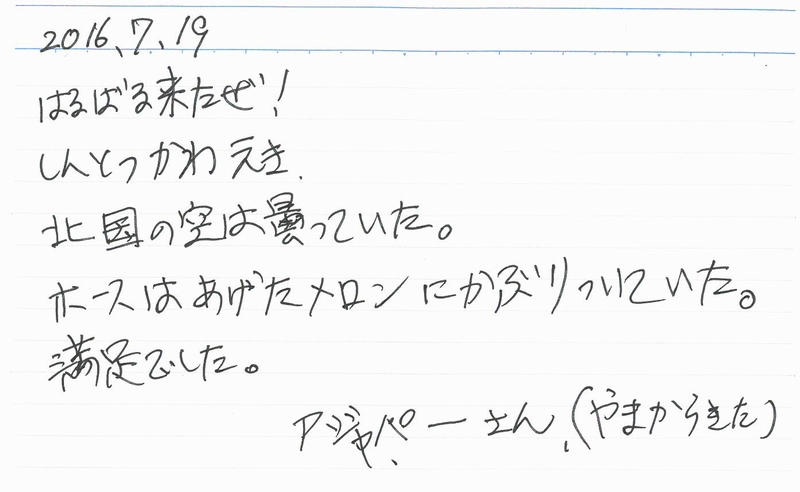 2016、7、19
はるばる来たぜ!
しんとつかわえき.
北国の空は曇っていた。
ホースはあげたメロンにかぶりついていた。
満足でした。
アジャパーさん(やまからきた)